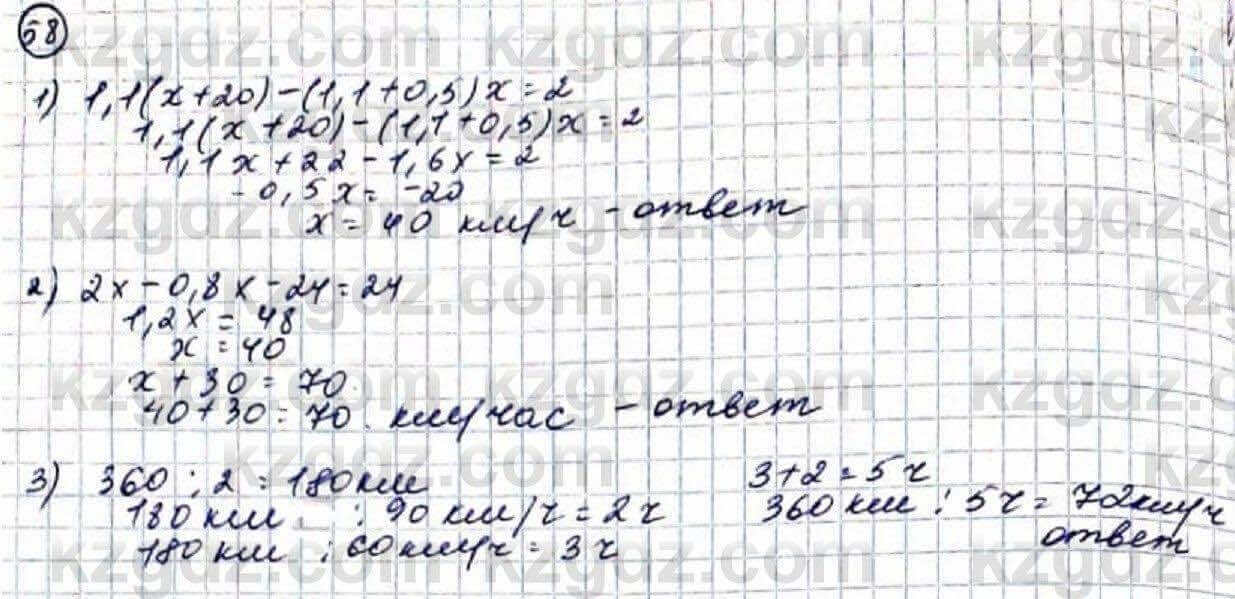 58
1) 1,1(x+20)-(1,1+0,5)x=2
1,1(x+20)-(1,1+0,5)x=2
1,1x+22-1,6x=2
-0,5x=-20
x=40 км/ч - ответ
2) 2x-0,8x-24=24
1,2x=48
x=40
x+30=70
40+30=70. км/час - ответ
3) 360:2=180км
180км:90км/ч=2ч
180км:60км/ч=3ч
3+2=5ч
360км:5ч=72км/ч
ответ
kzgdz.com